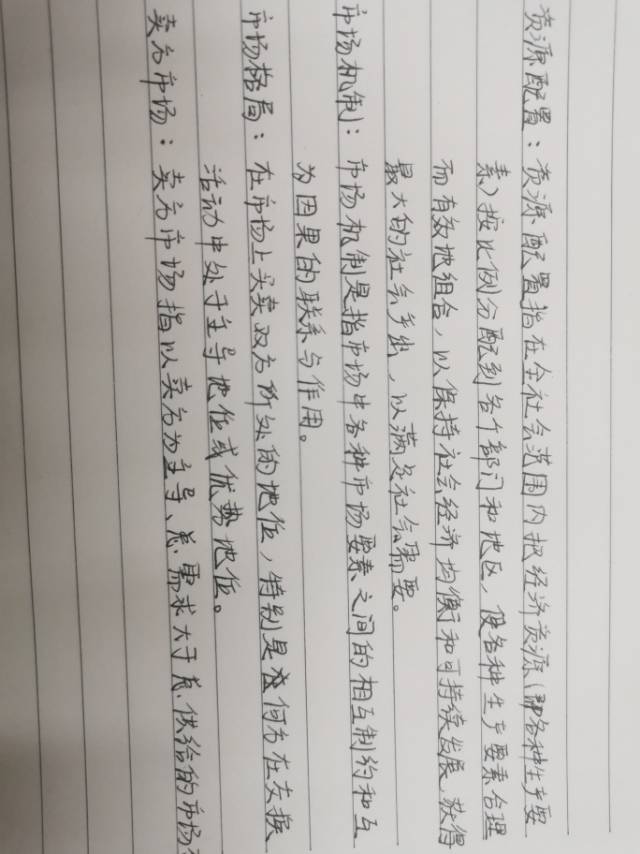 资源配置：资源配置指在全社会范围内把经济资源（即各种生产要
素）按比例分配到各个部门和地区，使各种生产要素合理
而有效地组合，以保持社会经济均衡和可持续发展，获得
最大的社会产出，以满足社会需要。
市场机制：市场机制是指市场中各种市场要素之间的相互制约和互
为因果的联系与作用。
市场格局：在市场上买卖双方所处的地位，特别是在何方在交换
活动中处于主导地位或优势地位。
卖方市场：卖方市场指以卖方为主导、总需求大于总供给的市场